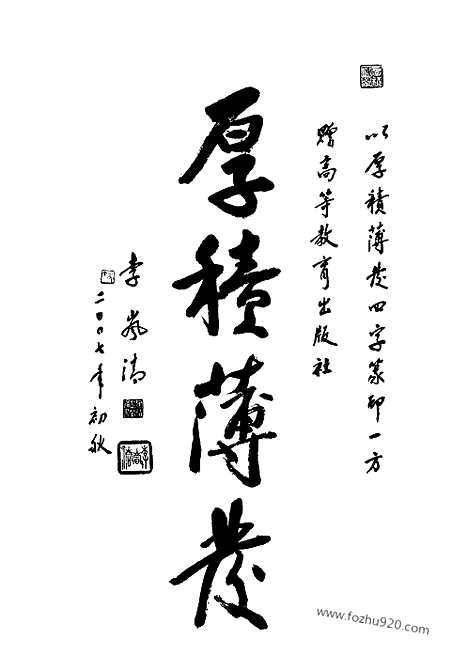 以厚積薄发四字篆印一方
赠高等教育出版社
厚積薄发
李岚清
二〇〇七年初秋
www.fozhu920.com